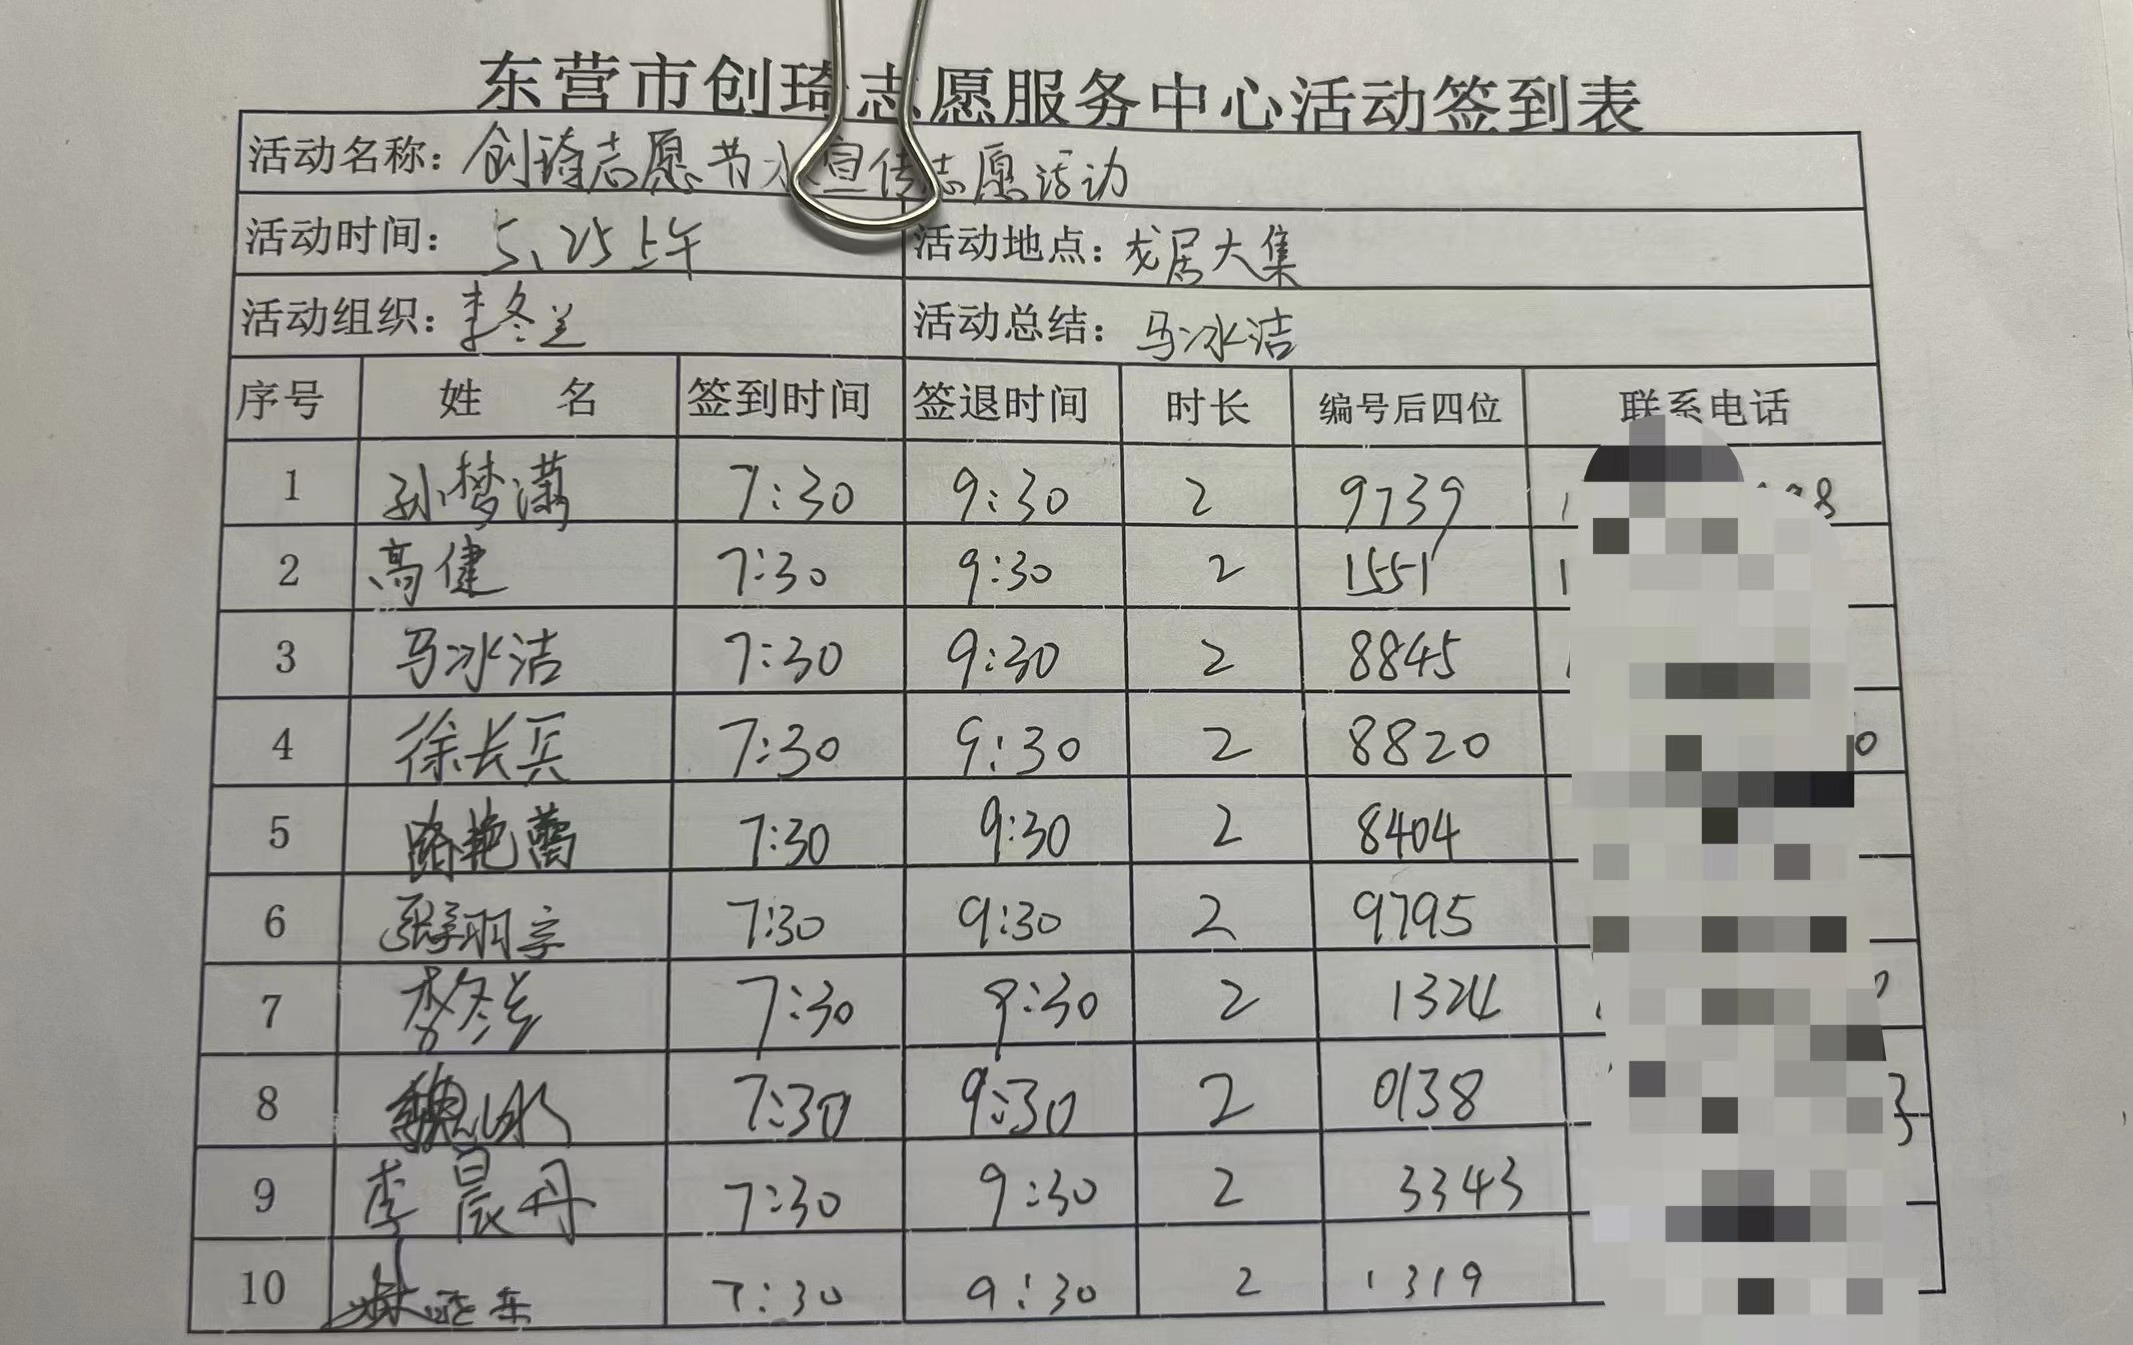 东营市创琦志愿服务中心活动签到表
活动名称：创琦志愿节水宣传志愿活动
活动时间：5、25上午 活动地点：龙居大集
活动组织：李冬兰 活动总结：马冰洁
序号 姓 名 签到时间 签退时间 时长 编号后四位 联系电话
1 孙梦潇 7:30 9:30 2 9739
2 高健 7:30 9:30 2 1551
3 马冰洁 7:30 9:30 2 8845
4 徐长兵 7:30 9:30 2 8820
5 路艳蕾 7:30 9:30 2 8404
6 张翔宇 7:30 9:30 2 9795
7 李冬兰 7:30 9:30 2 1324
8 魏冰 7:30 9:30 2 0138
9 李晨丹 7:30 9:30 2 3343
10 7:30 9:30 2 1319